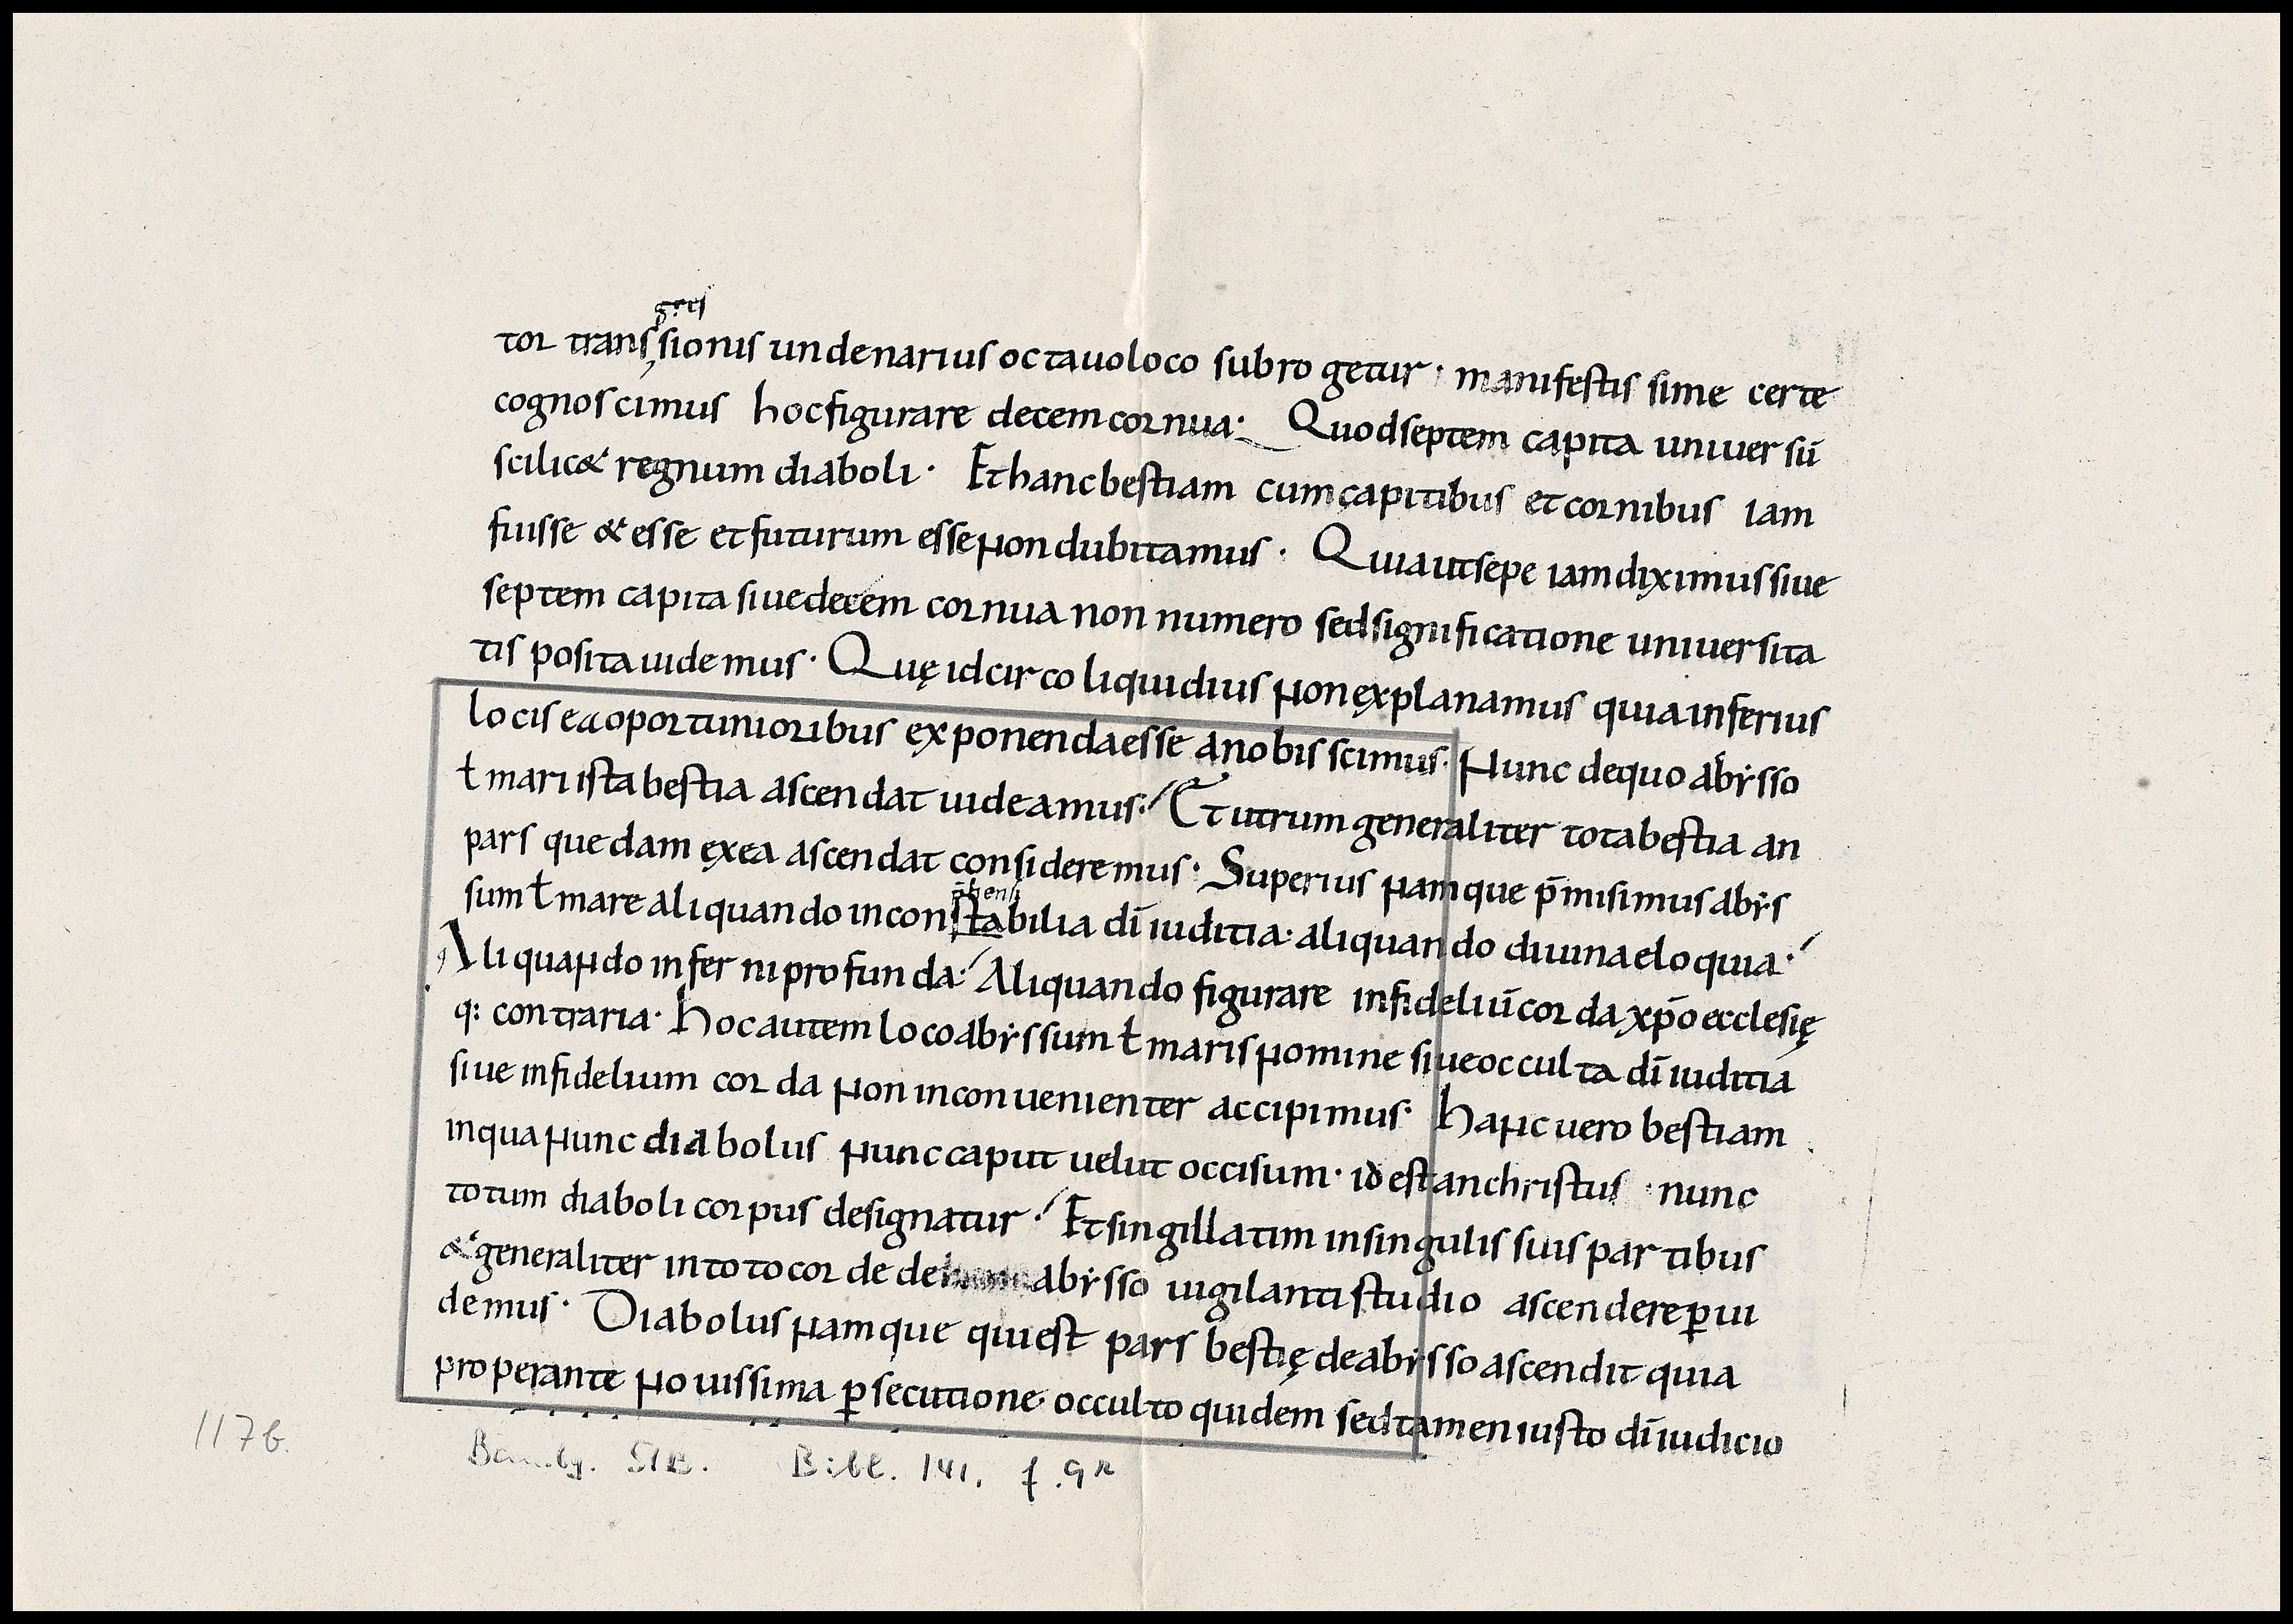 gres
tor transsionis undenarius octauo loco subrogetur · manifestissime certe
cognoscimus hoc figurare decem cornua · Quod septem capita uniuersū
scilic& regnum diaboli · Et hanc bestiam cum capitibus et cornibus iam
fuisse & esse et futurum esse non dubitamus · Quia ut sepe iam diximus siue
septem capita siue decem cornua non numero sed significatione uniuersita
tis posita uidemus · Quę idcirco liquidius non explanamus quia inferius
locis ea oportunioribus exponenda esse a nobis scimus · Nunc de quo abẏsso
ł mari ista bestia ascendat uideamus · Et utrum generaliter tota bestia an
pars quedam ęx ea ascendat consideremus · Superius namque p̄misimus abẏs
sum ł mare aliquando inconstabilia dī iuditia · aliquando diuina eloquia ·
Aliquando inferni profunda · Aliquando figurare infideliū corda xp̄o ecclesię
q: contraria · hoc autem loco abẏssum ł maris nomine siue occulta dī iuditia
siue infidelium corda non inconuenienter accipimus · hanc uero bestiam
in qua nunc diabolus nunc caput uelut occisum · id est anchristus · nunc
totum diaboli corpus designatur · Et singillatim in singulis suis partibus
& generaliter in toto corde de abẏsso uigilanti studio ascendere ꝑui
demus · Diabolus namque qui est pars bestię de abẏsso ascendit quia
properante nouissima ꝑsecutione occulto quidem sed tamen iusto dī iudicio
117b.
Bambg. StB. Bibl. 141, f. 9r